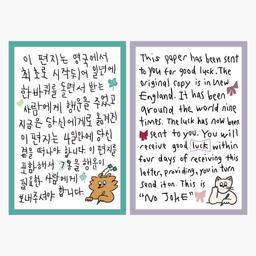 이 편지는 영국에서
최초로 시작되어 일년에
한바퀴를 돌면서 받는
사람에게 행운을 주었고
지금은 당신에게로 옮겨진
이 편지는 4일안에 당신
곁을 떠나야 합니다. 이 편지를
포함해서 7통을 행운이
필요한 사람에게
보내주셔야 합니다.
This paper has been sent
to you for good luck. The
original copy is in New
England. It has been
around the world nine
times. The luck has now been
sent to you. You will
receive good luck within
four days of receiving this
letter, providing, you in turn
send it on. This is
"NO JOKE"